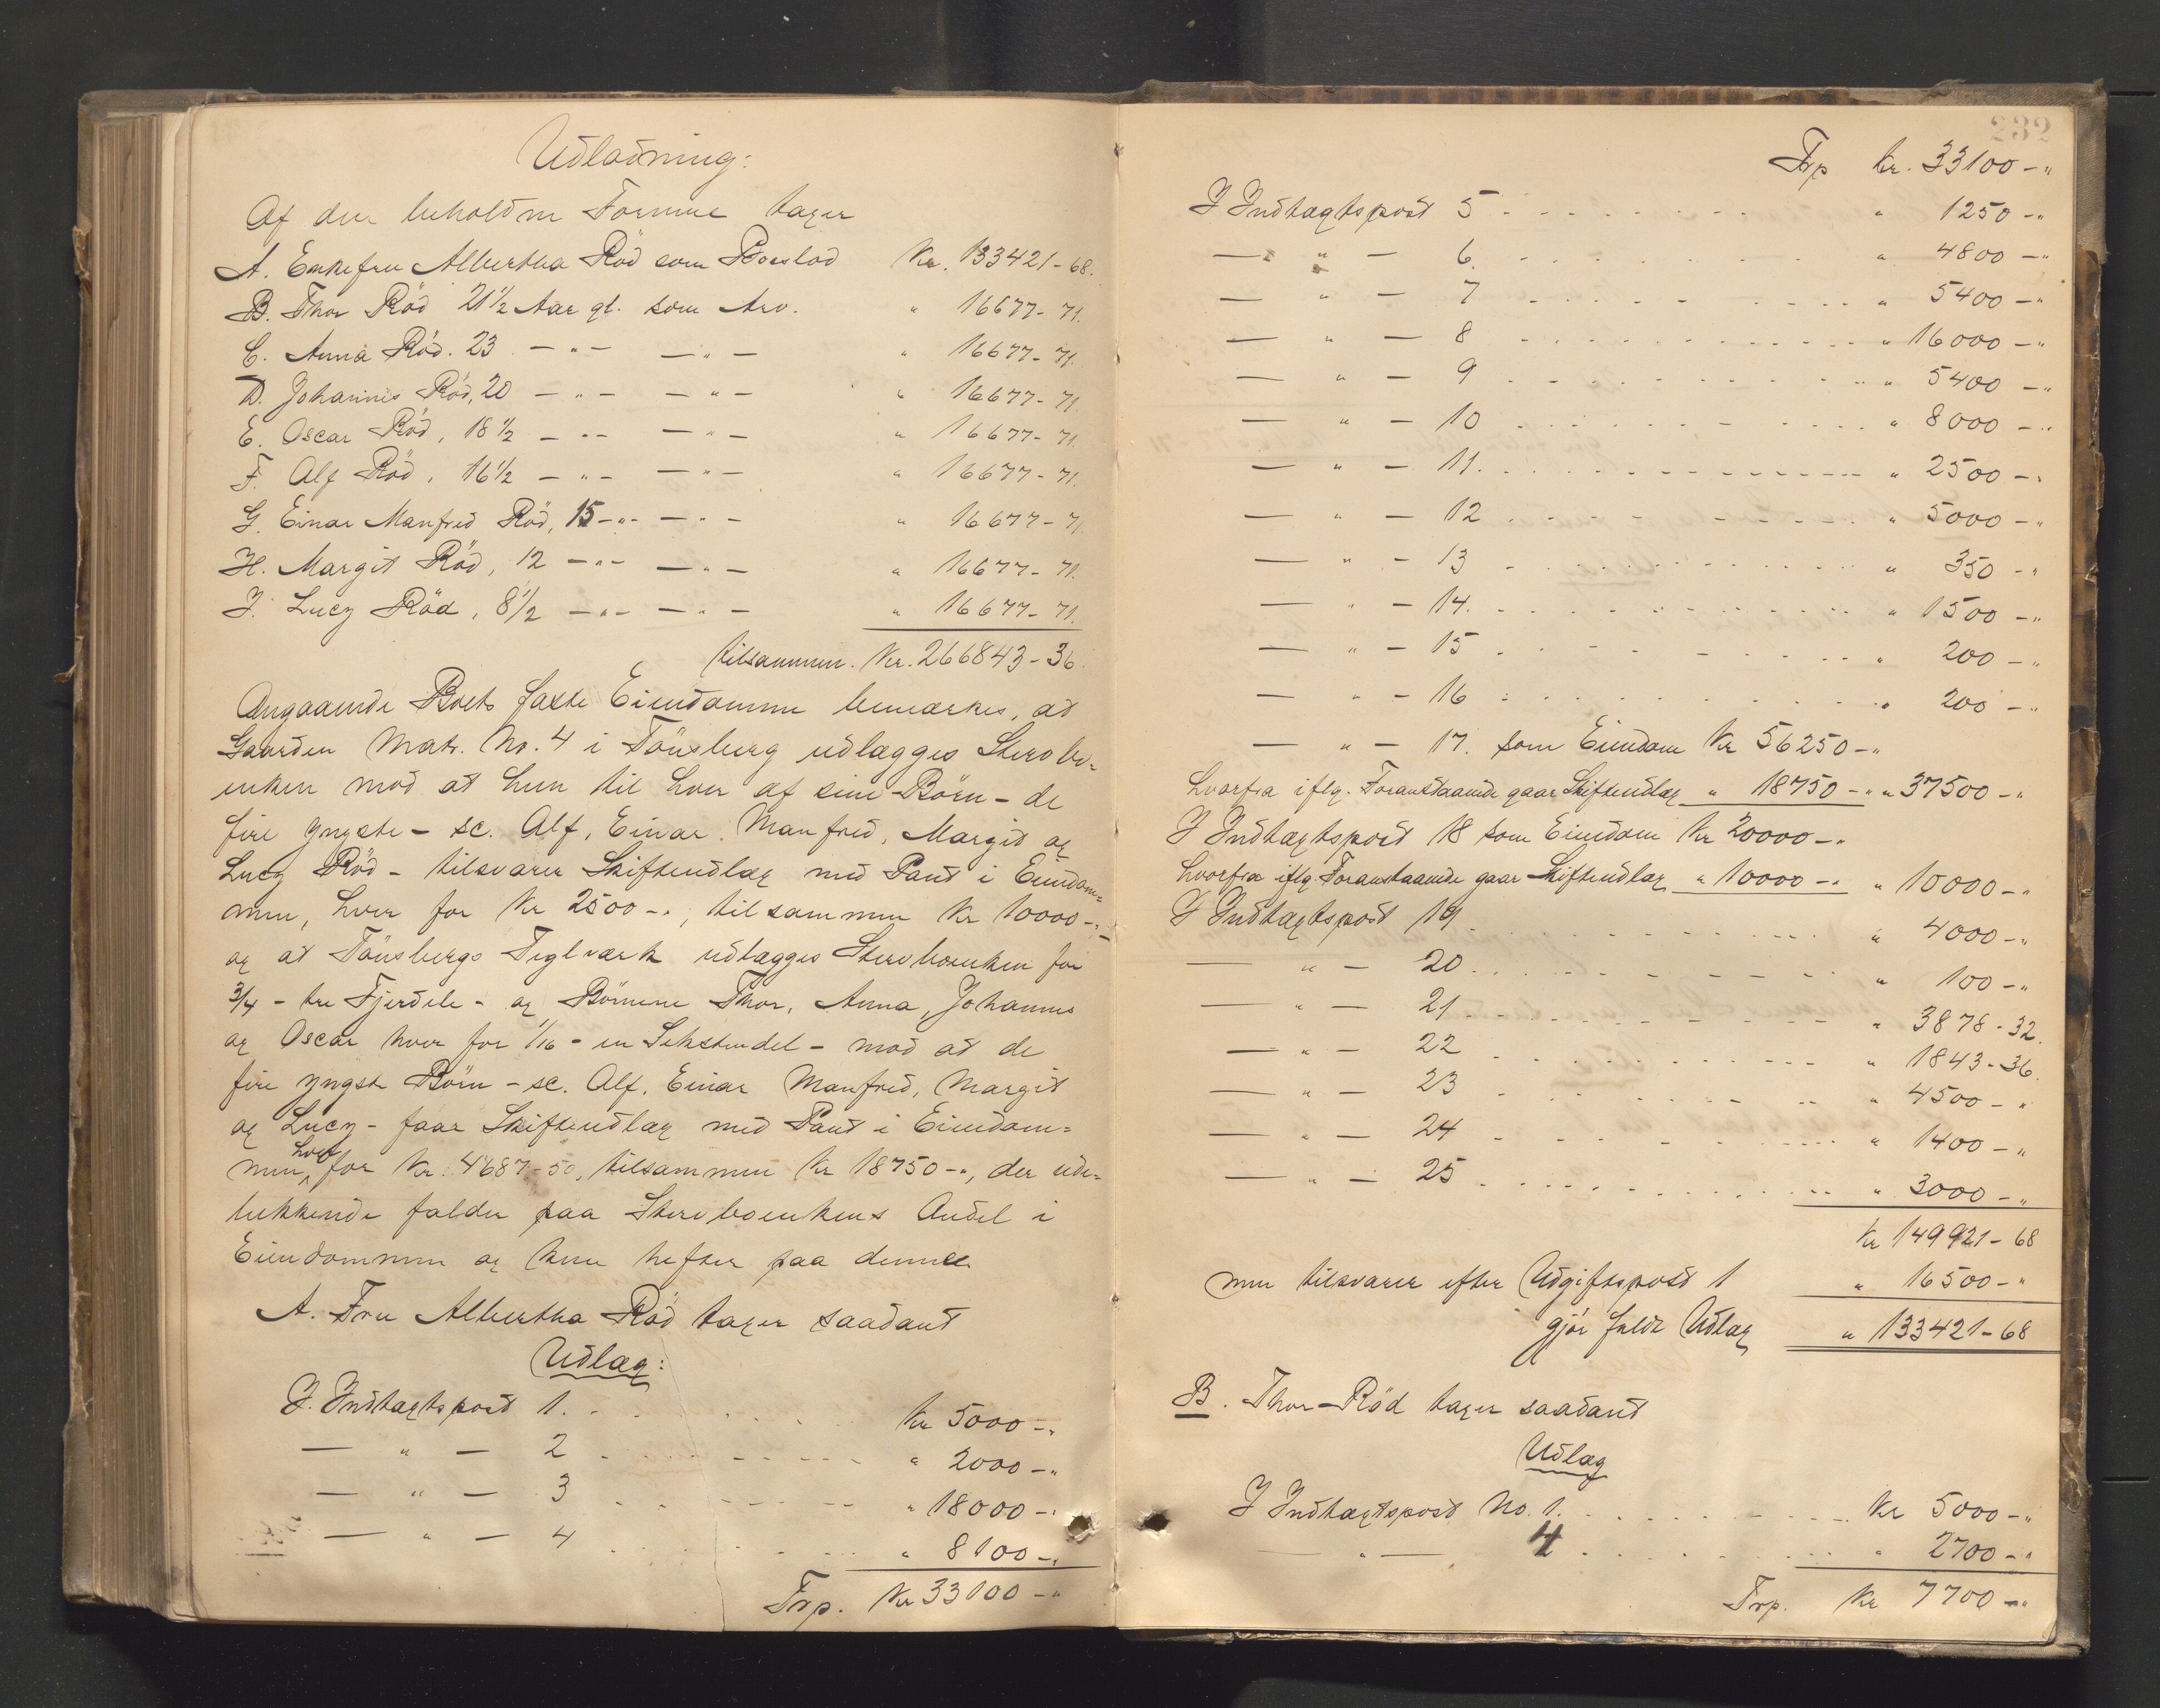 Udlodning:
Af den beholdne Formue tager
A. Enkefru Albertha Röd som Boeslod Kr. 133421-68.
B. Thor Röd 21½ Aar gl. som Arv. " 16677-71.
C. Anna Röd. 23 - " - - " - " 16677-71.
D. Johannes Röd, 20 - " - - " - " 16677-71.
E. Oscar Röd, 18½ - " - - " - " 16677-71.
F. Alf Röd, 16½ - " - - " - " 16677-71.
G. Einar Manfred Röd, 15 - " - - " - " 16677-71.
H. Margit Röd, 12 - " - - " - " 16677-71.
J. Lucy Röd, 8½ - " - - " - " 16677-71.
tilsammen. Kr. 266843-36.
Angaaende Boets faste Eiendomme bemærkes, at
Gaarden Matr. No. 4 i Tönsberg udlægges Stervbo-
enken mod at hun til hver af sine Börn - de
fire yngste - sc. Alf, Einar Manfred, Margit og
Lucy Röd - tilsvarer Skifteudlæg med Pant i Eiendom-
men, hver for Kr 2500-", tilsammen Kr 10000-"-
og at Tönsbergs Teglværk udlægges Stervboenken for
3/4 - tre Fjerdele - og Börnene Thor, Anna, Johannes
og Oscar hver for 1/16 - en Sekstendel - mod at de
fire yngste Börn - sc. Alf, Einar Manfred, Margit
og Lucy - faar Skifteudlæg med Pant i Eiendom=
men, hver for Kr. 4687-50, tilsammen Kr 18750-", der ude-
lukkende falder paa Stervboenkens Andel i
Eiendommen og kun hefter paa denne
A. Fru Albertha Röd tager saadant
Udlæg:
J. Indtægtspost 1. Kr 5000-"
- " - 2 " 2000-"
- " - 3 " 18000-"
- " - 4 " 8100-"
Trp. Kr 33100-"
232
Trp Kr. 33100-"
J Indtægtspost 5 " 1250-"
- " - 6. " 4800-"
- " - 7 " 5400-"
- " - 8 " 16000-"
- " - 9 " 5400-"
- " - 10 " 8000-"
- " - 11. " 2500-"
- " - 12 " 5000-"
- " - 13 " 350-"
- " - 14. " 1500-"
- " - 15 " 200-"
- " - 16 " 200-"
- " - 17. som Eiendom Kr 56250-"
hvorfra iflg. Foranstaaende gaar Skifteudlæg " 18750-" " 37500-"
J Indtægtspost 18 som Eiendom Kr 20000-"
hvorfra iflg. Foranstaaende gaar Skifteudlæg " 10000-" " 10000-"
J Indtægtspost 19 " 4000-"
- " - 20 " 100-"
- " - 21 " 3878-32.
- " - 22 " 1843-36.
- " - 23 " 4500-"
- " - 24 " 1400-"
- " - 25 " 3000-"
Kr 149921-68
men tilsvarer efter Udgiftspost 1 " 16500-"
gjör fuldt Udlæg " 133421-68
B. Thor Röd tager saadant
Udlæg
J Indtægtspost No. 1. Kr 5000-"
- " - 4 " 2700-"
Trp. Kr 7700-"